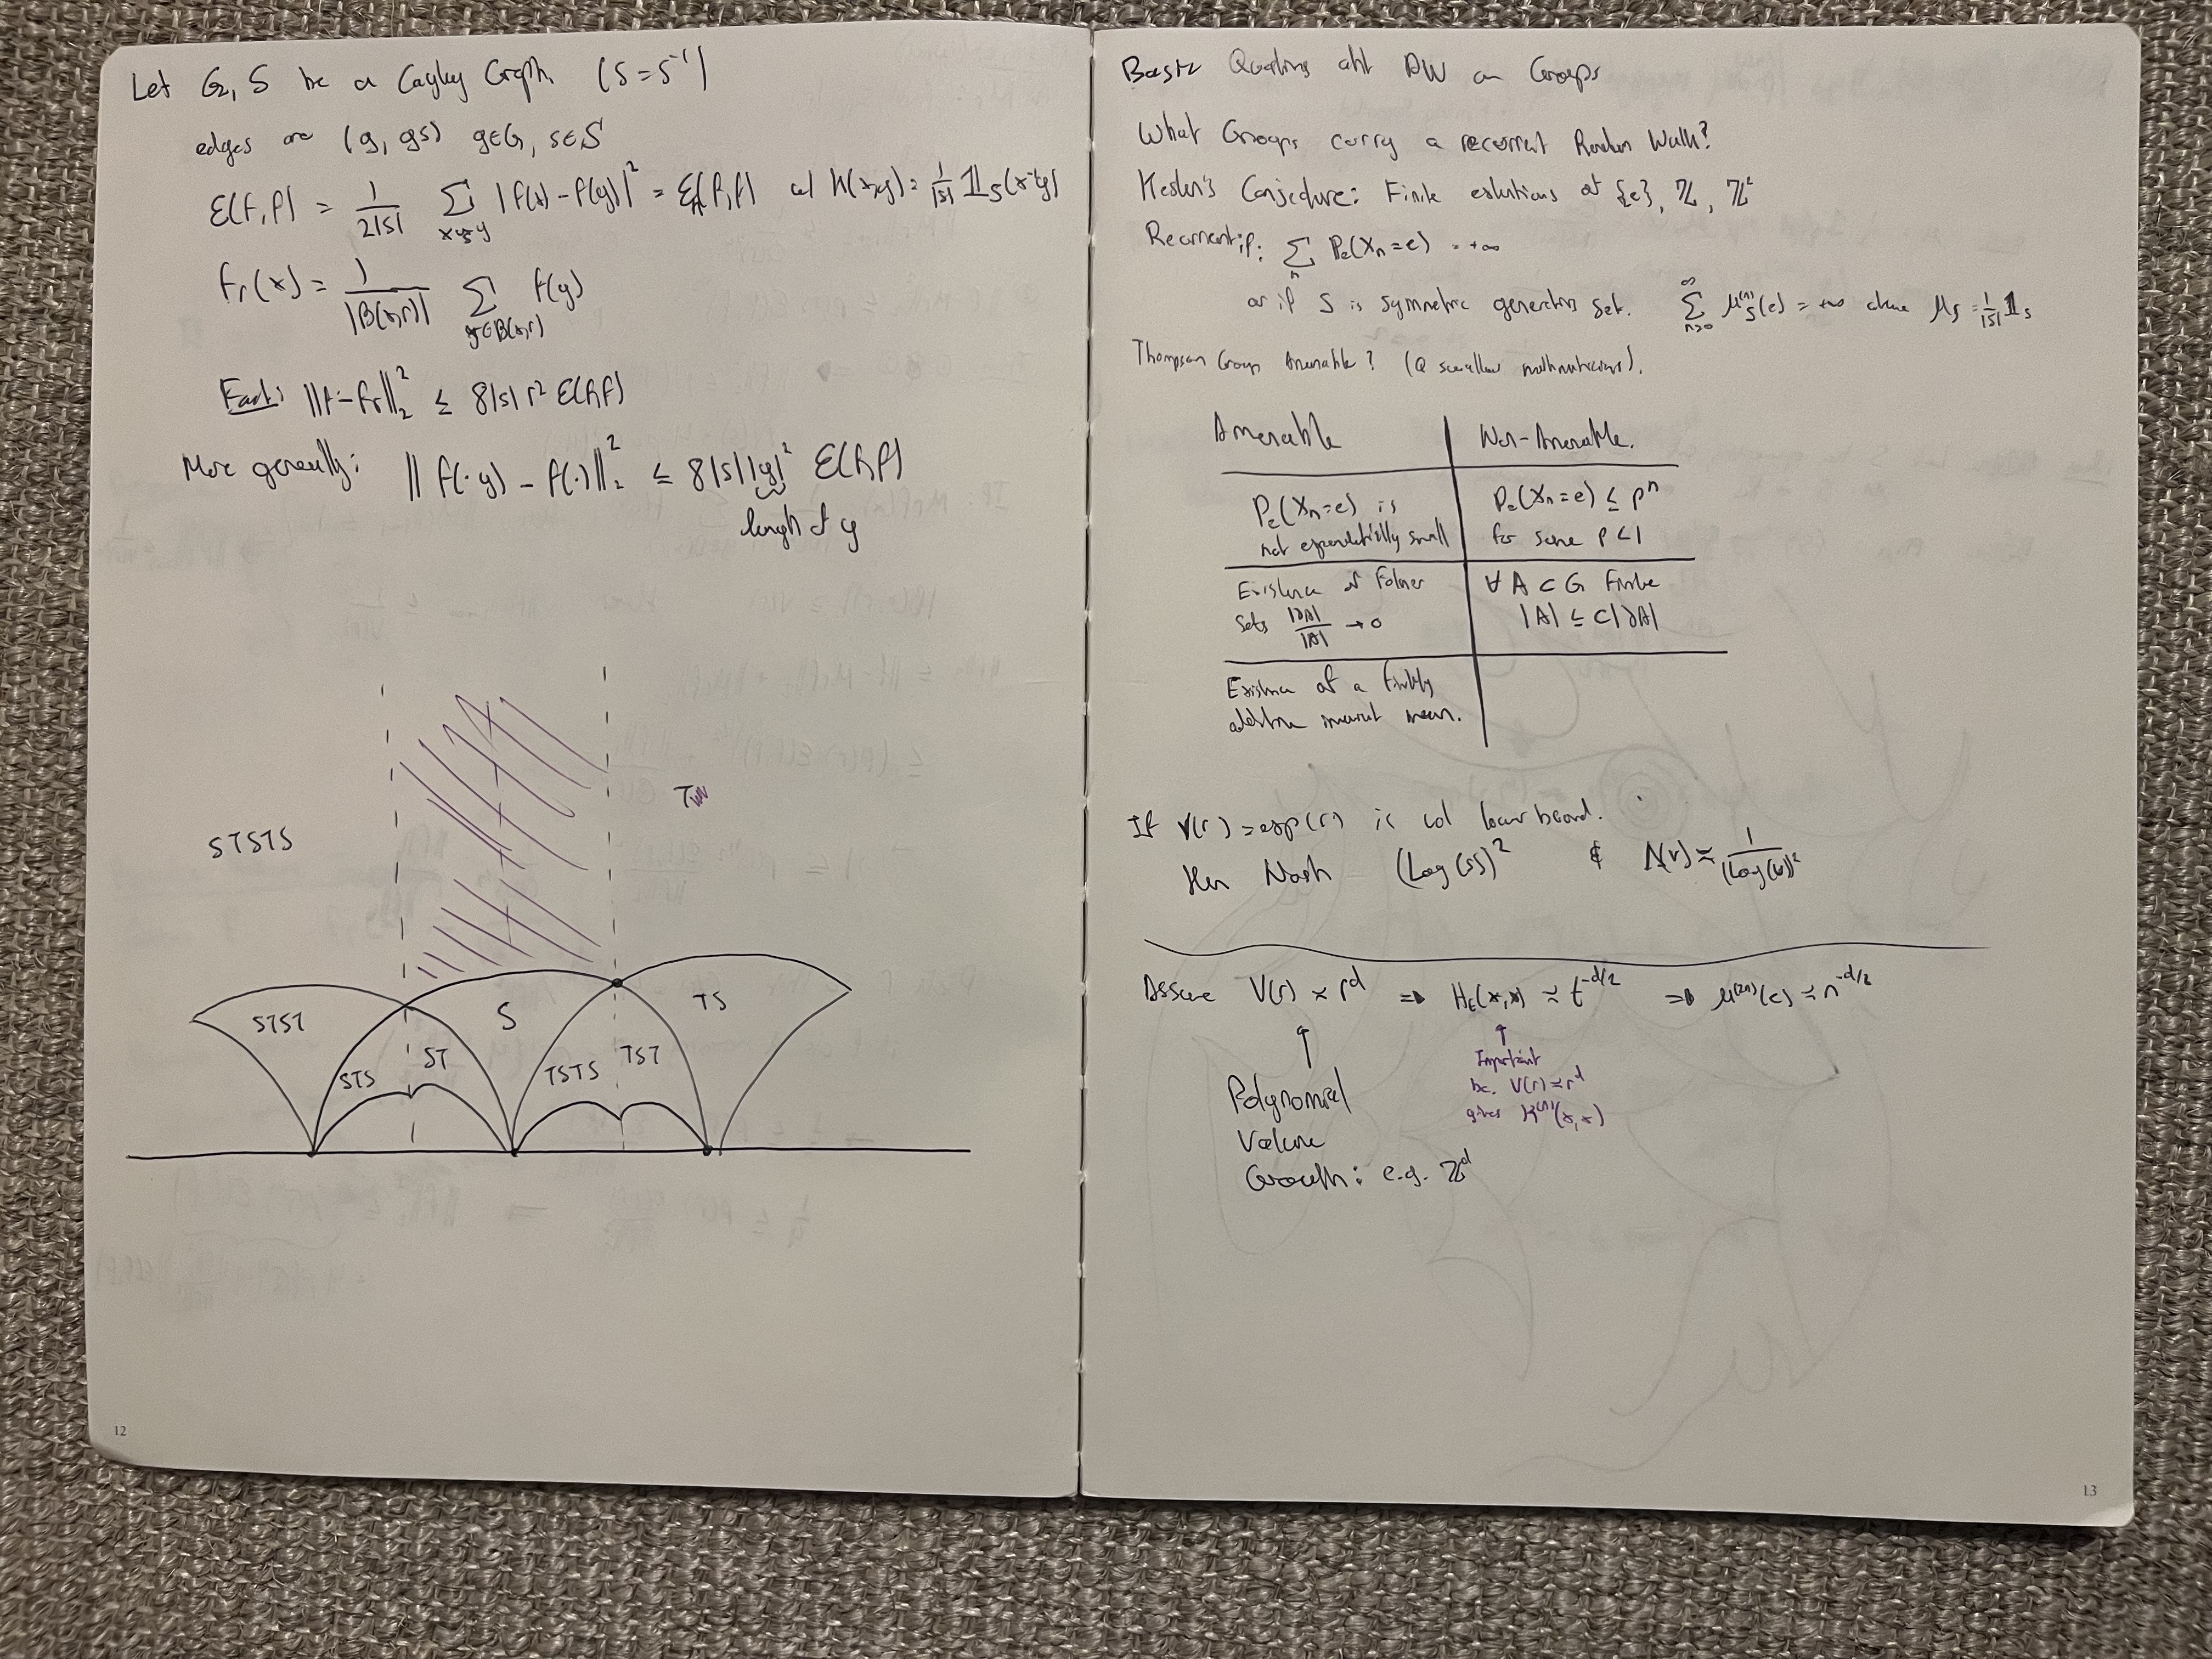 Let G, S be a Cayley Graph (S = S⁻¹)
edges are (g, gs) g∈G, s∈S
ℰ(f,f) = 1/(2|S|) Σ_{x~y} |f(x) - f(y)|² = ℰ(f,f) w/ K(x,y) = 1/|S| 𝟙_S(x⁻¹y)
f_r(x) = 1/|B(x,r)| Σ_{y∈B(x,r)} f(y)
Fact: ||f - f_r||₂² ≤ 8|S| r² ℰ(f,f)
More generally: || f(·y) - f(·)||₂² ≤ 8|S| |y|² ℰ(f,f)
length of y
STSTS
T
STST
STS
ST
S
TSTS
TST
TS
12
Questions abt RW on Groups
What Groups carry a recurrent Random Walk?
Kesten's Conjecture: Finite extentions of {e}, ℤ, ℤ²
Recurrent if: Σ_n P_e(X_n = e) = +∞
or if S is symmetric generating set. Σ_{n≥0}^∞ μ_S^{(n)}(e) = +∞ where μ_S = 1/|S| 𝟙_S
Thompson Group Amenable? (a swallow mathematicians).
Amenable
Non-Amenable.
P_e(X_n = e) is
not exponentially small
P_e(X_n = e) ≤ ρⁿ
for some ρ < 1
Existence of Folner
sets |∂A|/|A| → 0
∀ A ⊂ G finite
|A| ≤ C|∂A|
Existence of a finitely
additive invariant mean.
If V(r) = exp(r) is vol lower bound.
then Nash (Log(s))² & N(v) ≈ 1/(Log(v))²
Assume V(r) ≈ r^d ⇒ H_t(x,x) ≈ t^{-d/2} ⇒ μ^{(2n)}(e) ≈ n^{-d/2}
Polynomial
Volume
Growth: e.g. ℤ^d
Important
bc, V(r) ≈ r^d
gives K^{(n)}(x,x)
13